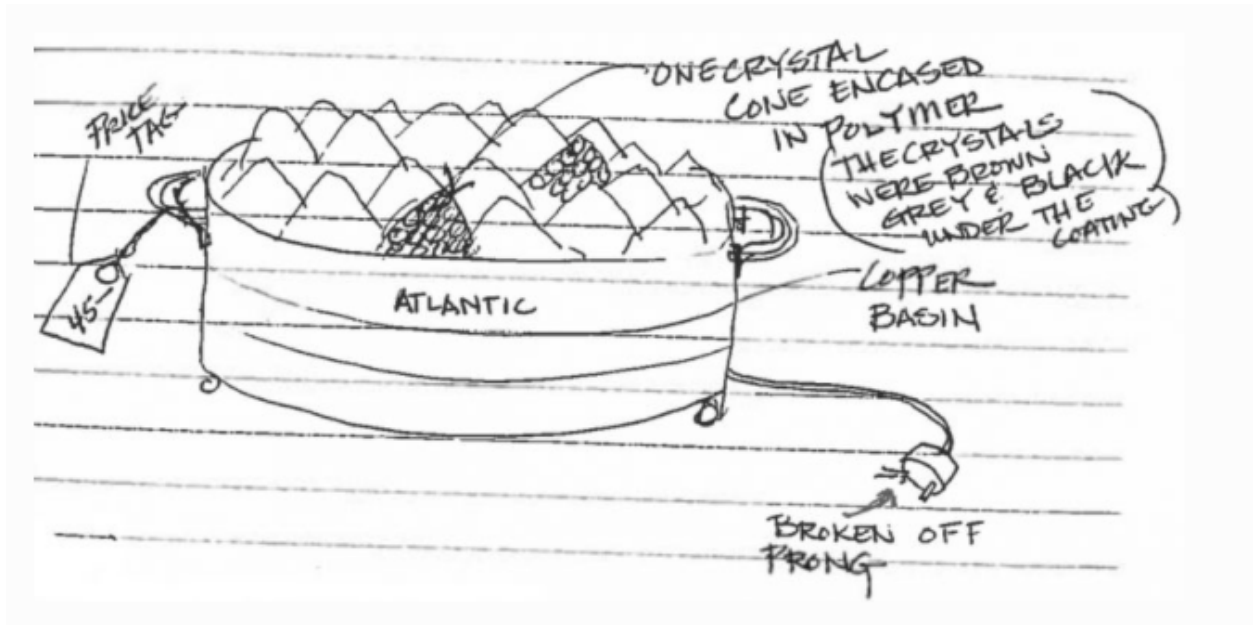 ONE CRYSTAL
CONE ENCASED
IN POLYMER
THE CRYSTALS
WERE BROWN
GREY & BLACK
UNDER THE
COATING
PRICE
TAG
45-
ATLANTIC
COPPER
BASIN
BROKEN OFF
PRONG